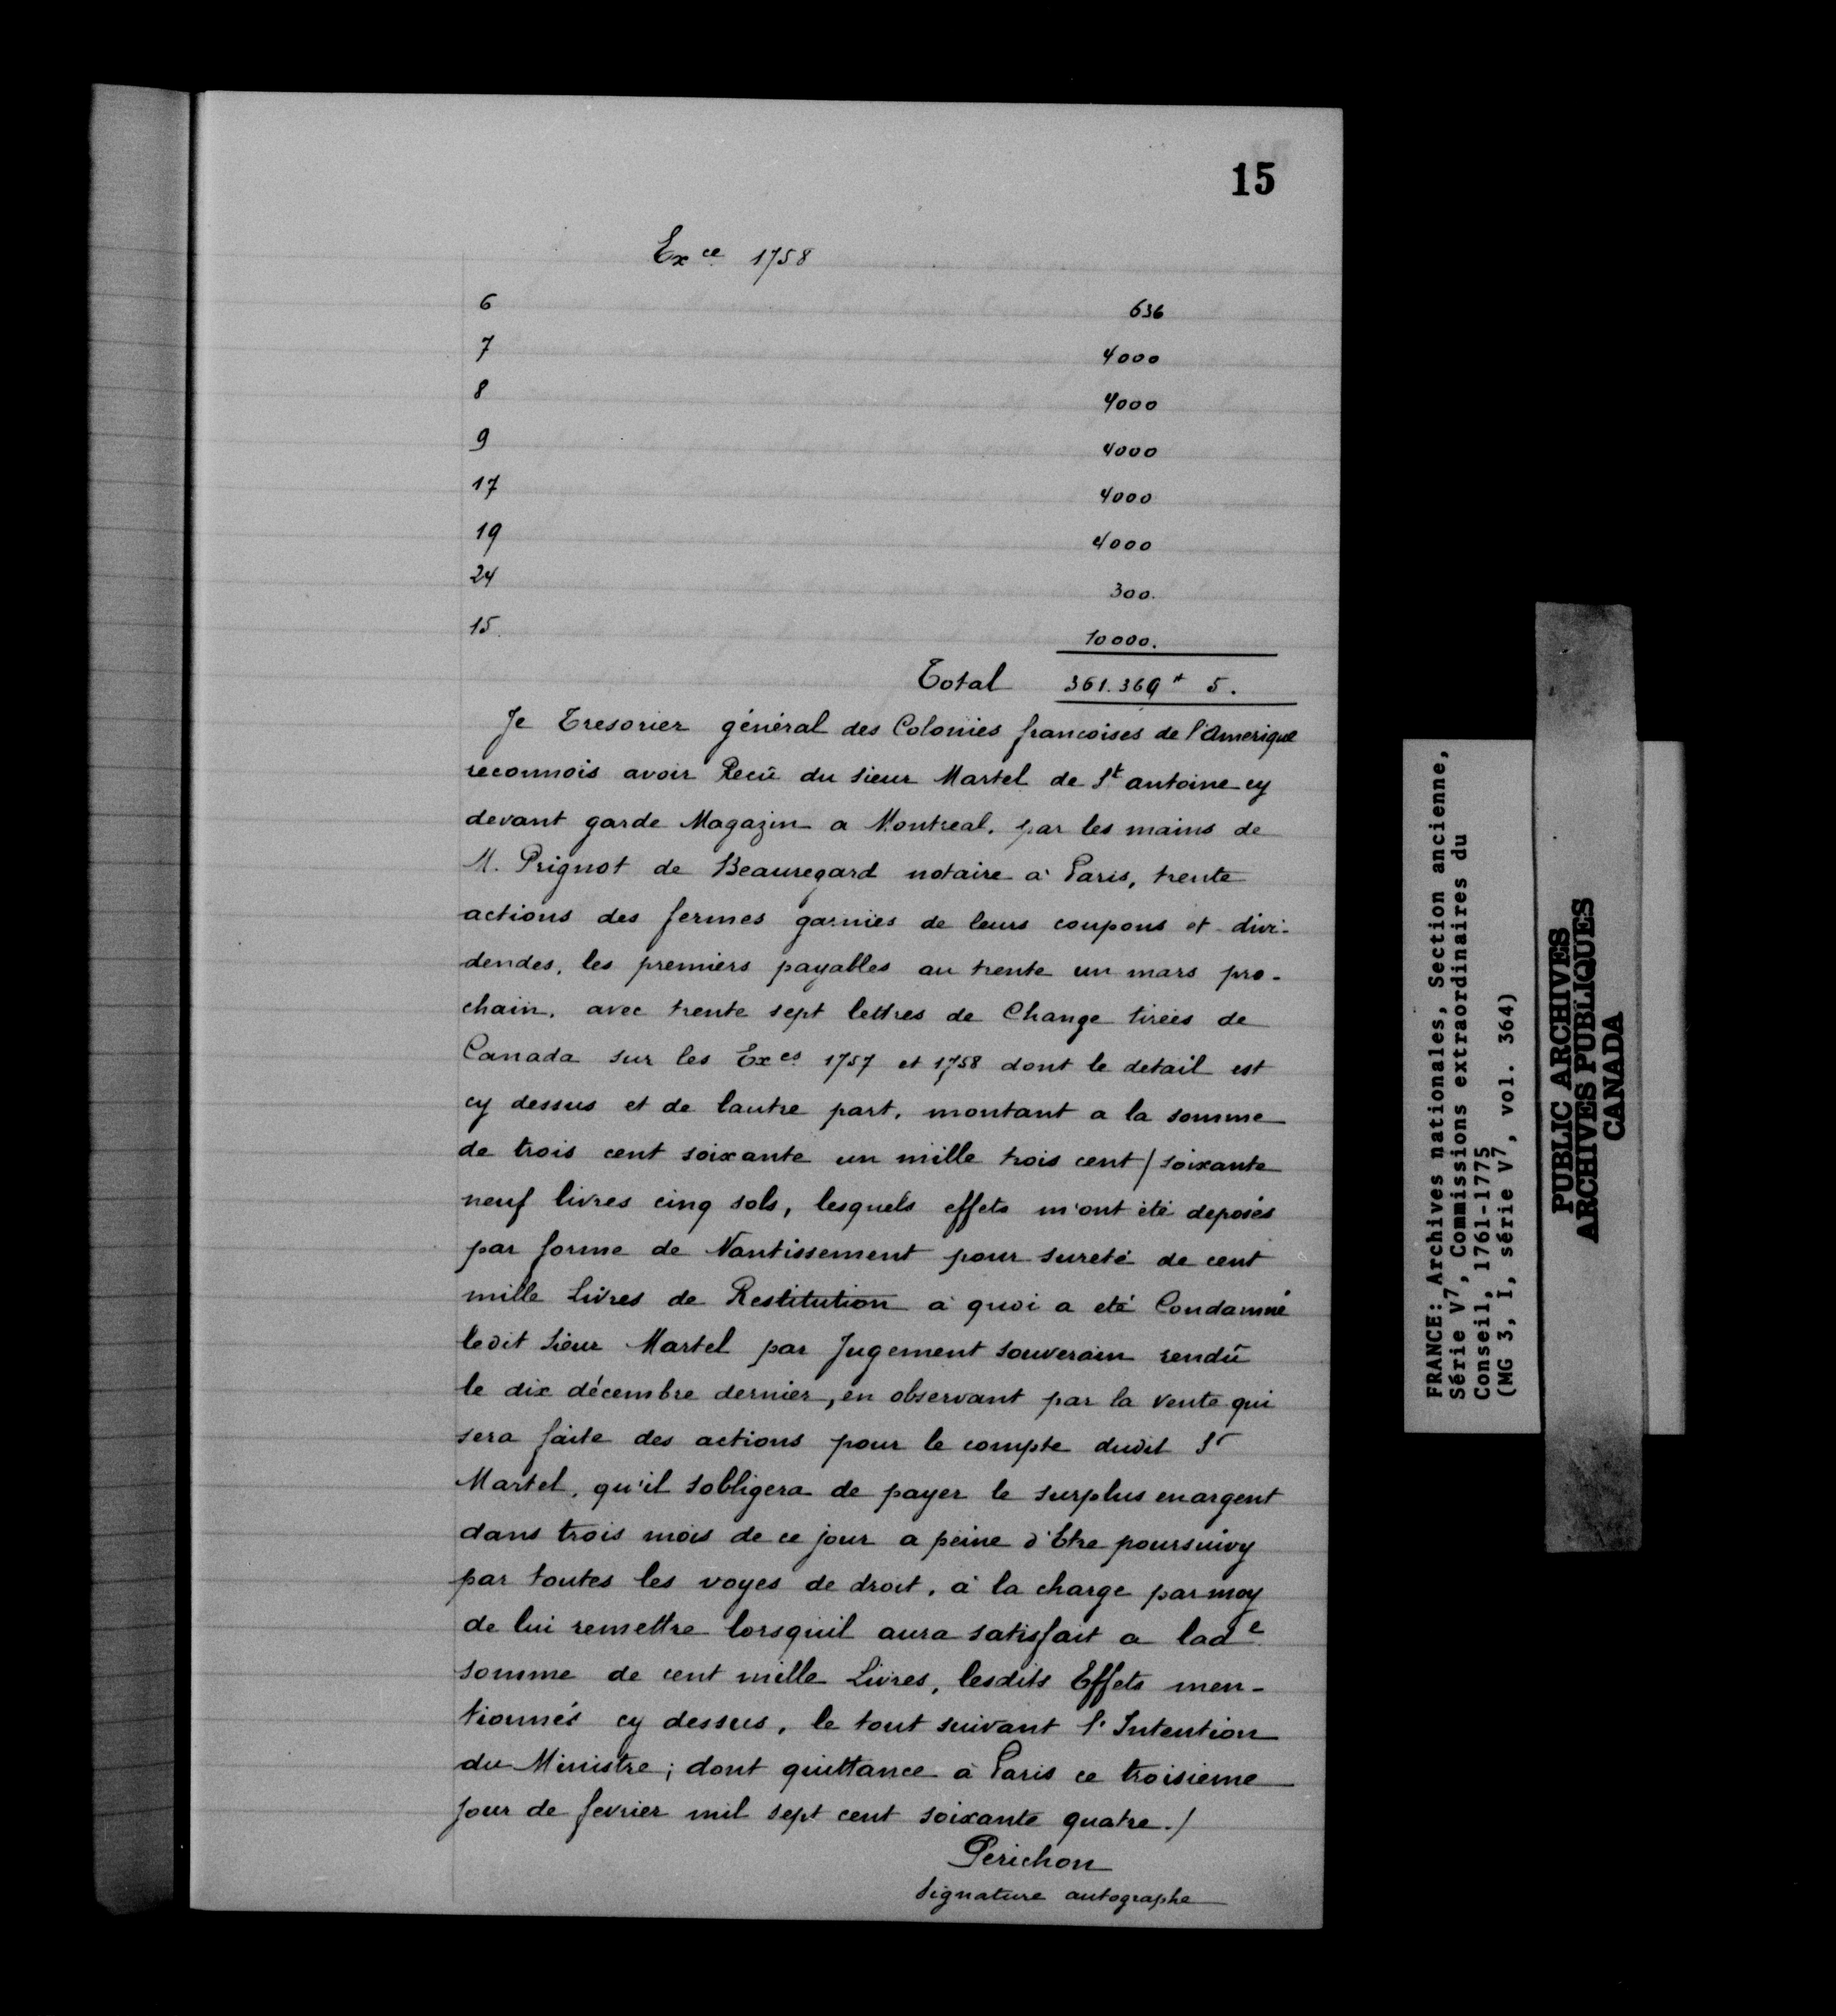 15
Ex ce 1758
6 636
7 4000
8 4000
9 4000
17 4000
19 4000
24 300.
15. 10000.
Total 361.369 ₶ 5.
Je Tresorier général des Colonies francoises de l'Amerique
reconnois avoir Recû du sieur Martel de St antoine cy
devant garde Magazin a Montreal, par les mains de
M. Prignot de Beauregard notaire à Paris, trente
actions des fermes garnies de leurs coupons et divi-
dendes, les premiers payables au trente un mars pro-
chain, avec trente sept lettres de Change tirées de
Canada sur les Exces 1757 et 1758 dont le detail est
cy dessus et de lautre part, montant a la somme
de trois cent soixante un mille trois cent / soixante
neuf livres cinq sols, lesquels effets m'ont été deposés
par forme de Nantissement pour sureté de cent
mille Livres de Restitution à quoi a eté Condamné
ledit Sieur Martel par Jugement souverain rendû
le dix décembre dernier, en observant par la vente qui
sera faite des actions pour le compte dudit Sr
Martel, qu'il sobligera de payer le surplus en argent
dans trois mois de ce jour a peine d'Etre poursuivy
par toutes les voyes de droit, à la charge par moy
de lui remettre lorsquil aura satisfait a lade
somme de cent mille Livres, lesdits Effets men-
tionnés cy dessus, le tout suivant l'Intention
du Ministre; dont quittance à Paris ce troisieme
jour de fevrier mil sept cent soixante quatre./
Perichon
signature autographe
FRANCE: Archives nationales, Section ancienne,
Série V7, Commissions extraordinaires du
Conseil, 1761-1775
(MG 3, I, série V7, vol. 364)
PUBLIC ARCHIVES
ARCHIVES PUBLIQUES
CANADA